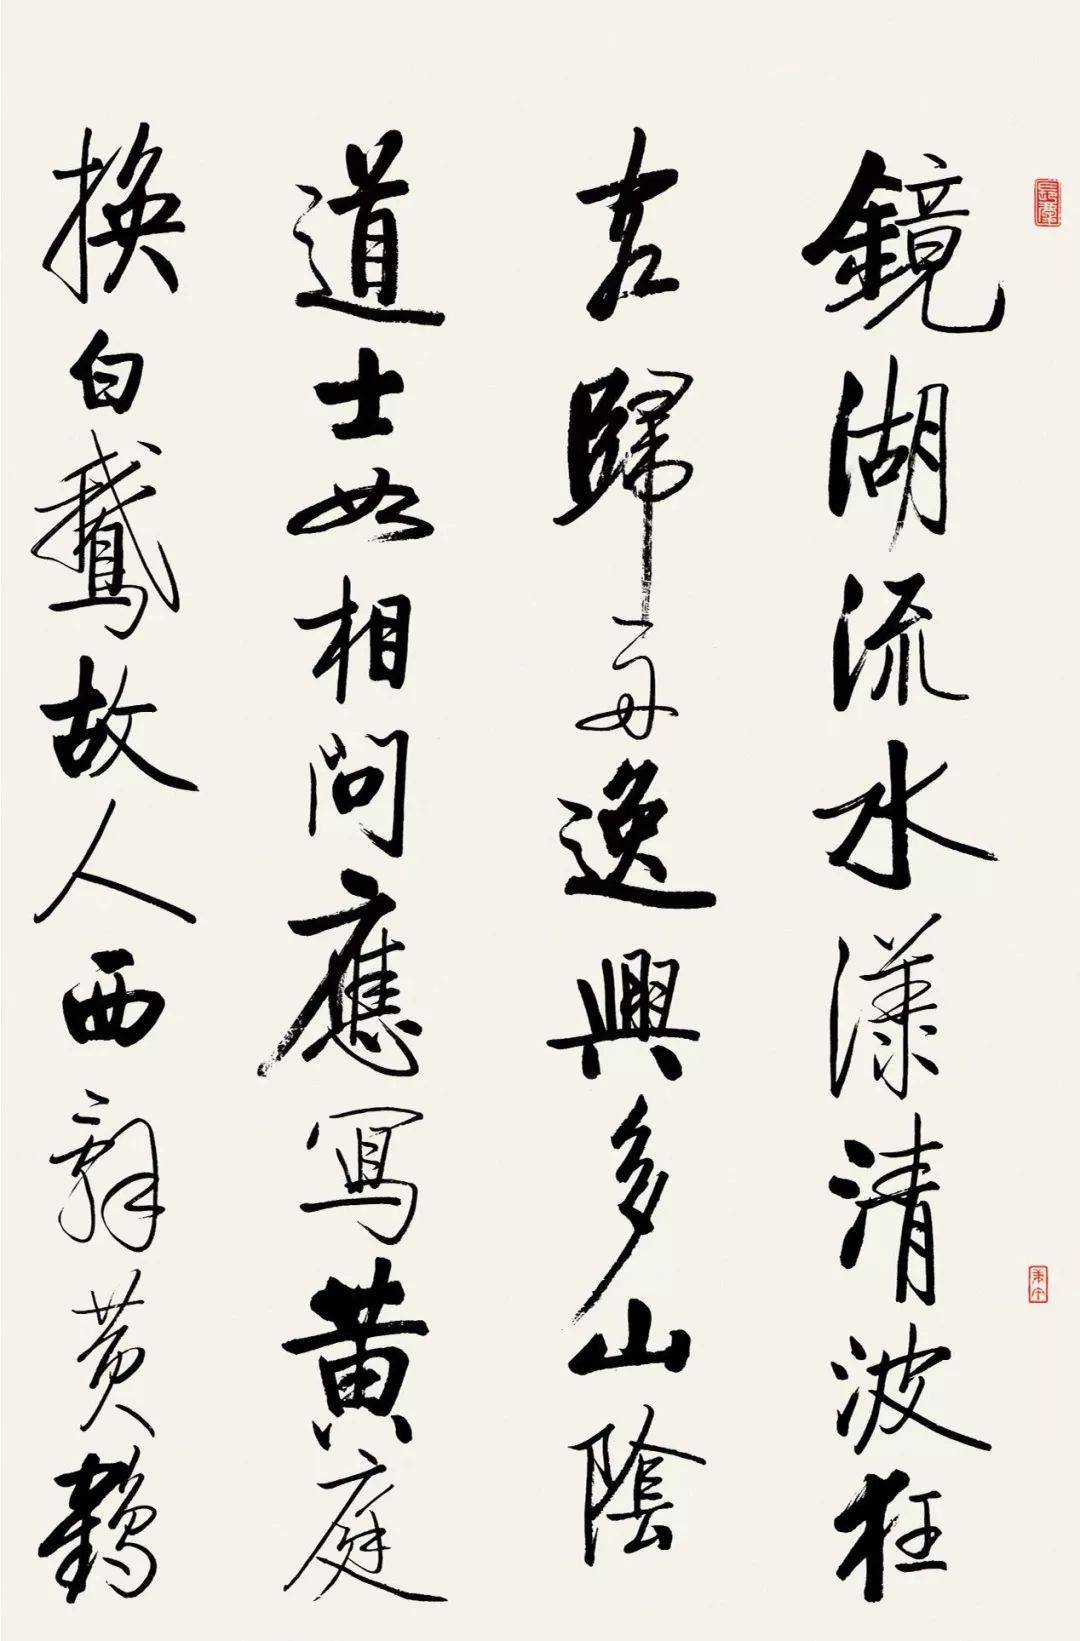 鏡湖流水漾清波狂
客歸舟逸興多山陰
道士如相問應寫黄庭
換白鵝故人西辭黄鶴